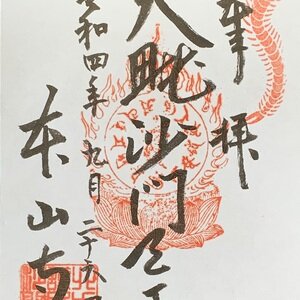 奉拝
大毗沙門天王
令和四年九月二十六日
本山寺